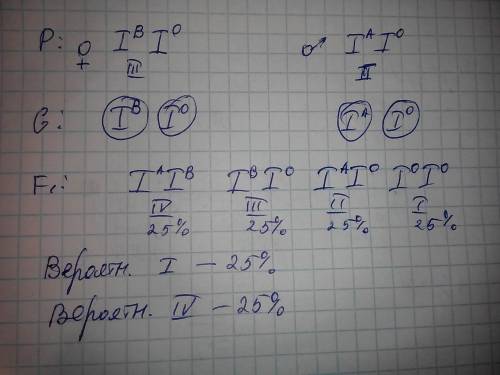 P: ♀ IᴮI⁰ ♂ IᴬI⁰
III II
G: Iᴮ I⁰ Iᴬ I⁰
F₁: IᴬIᴮ IᴮI⁰ IᴬI⁰ I⁰I⁰
IV III II I
25% 25% 25% 25%
Вероятн. I – 25%
Вероятн. IV – 25%